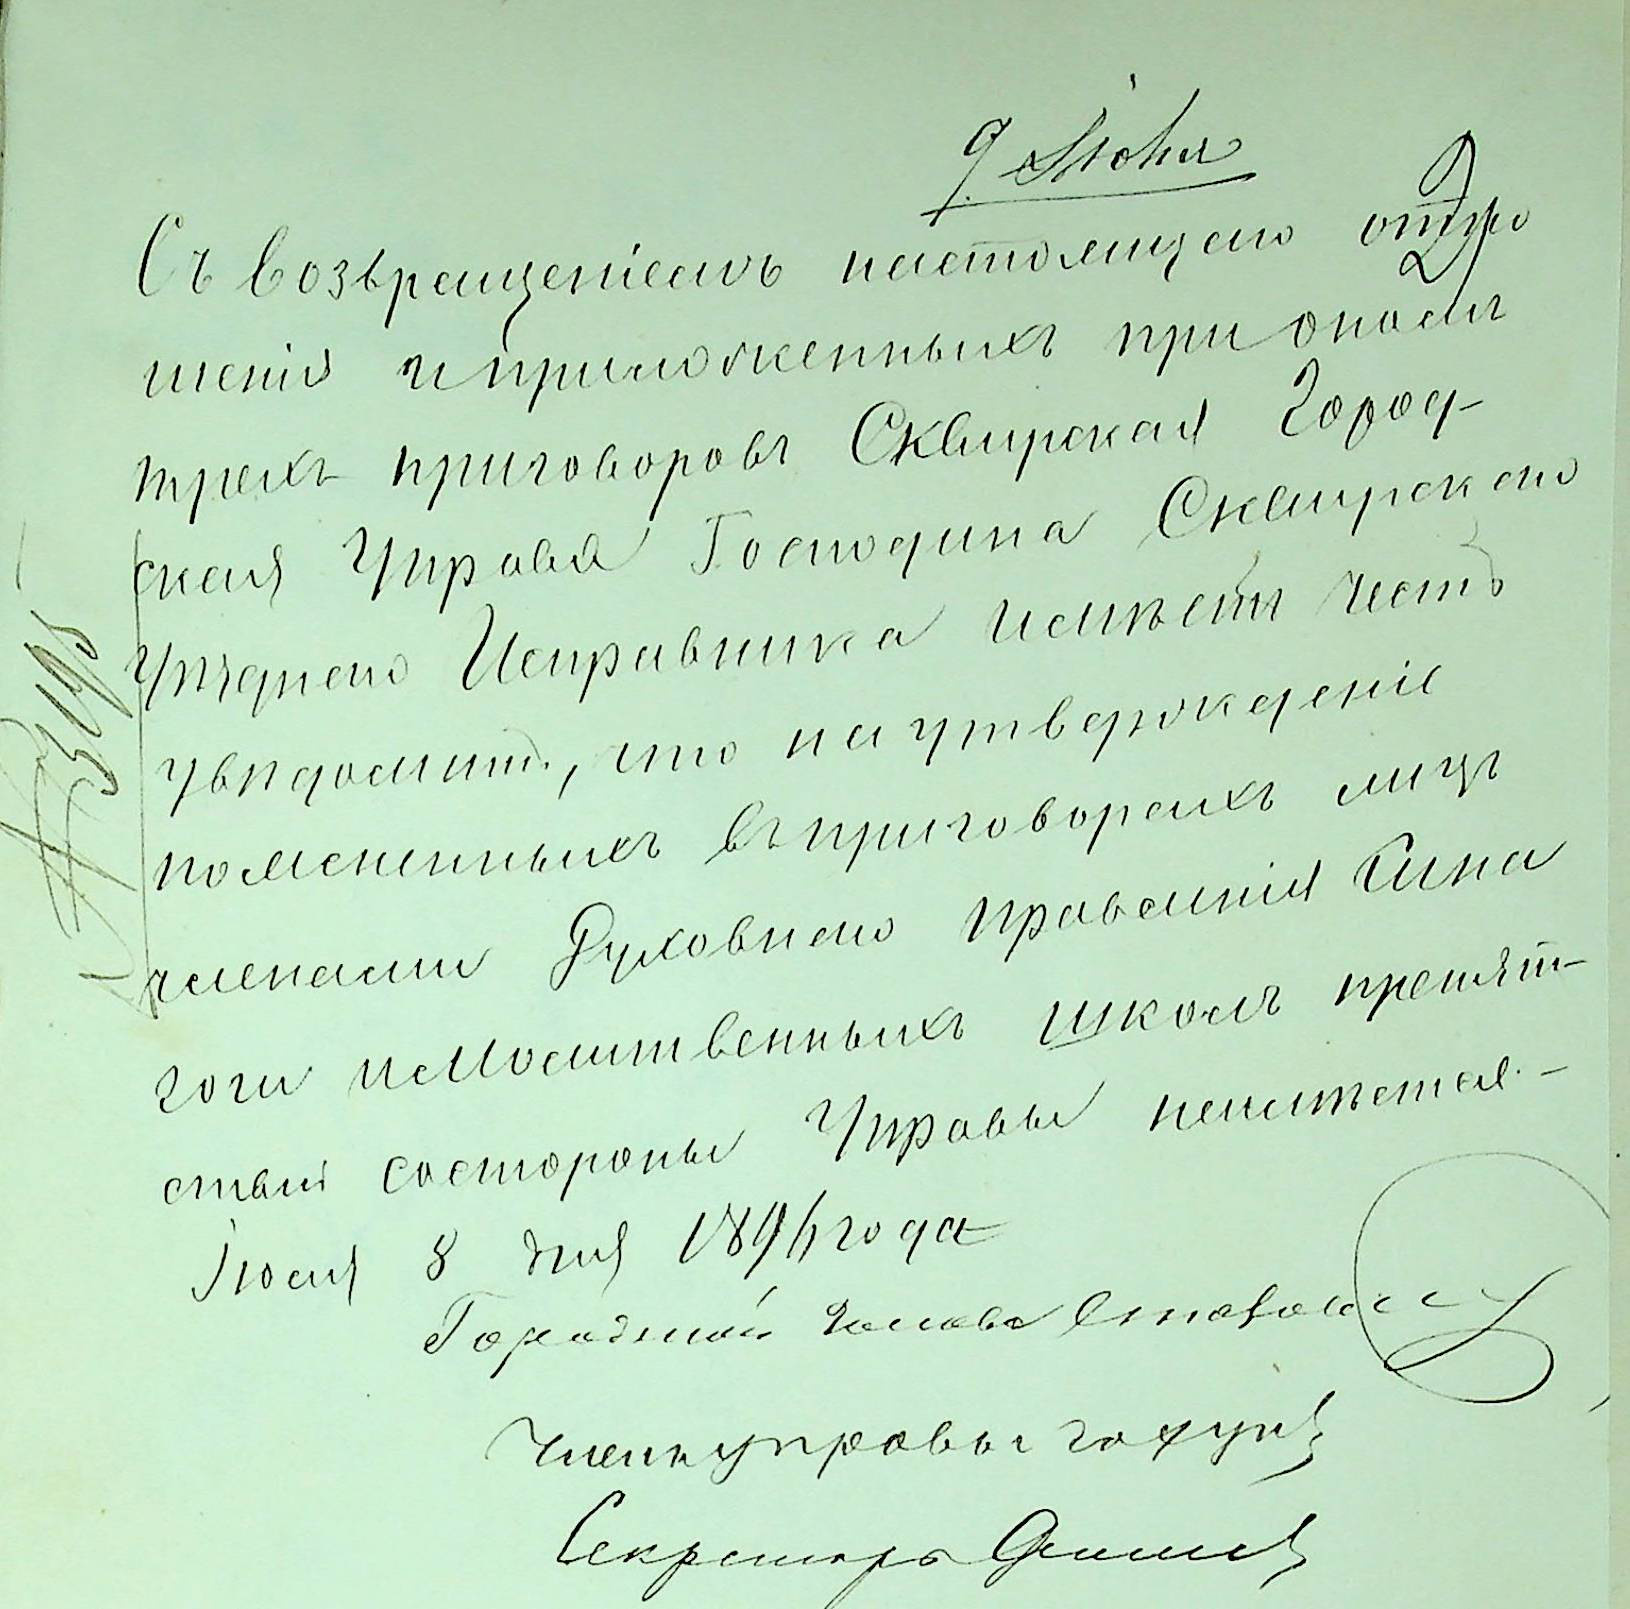 9 Июля
2
Съ возвращеніемъ настоящаго отно
шенія и приложенныхъ при ономъ
трехъ приговоровъ Сквирская Город-
ская Управа Господина Сквирскаго
Уѣзднаго Исправника имѣетъ честь
увѣдомить, что на утвержденіе
помененныхъ въ приговорахъ лицъ
членами Духовнаго правленія Сина
гоги и молитвенныхъ школъ препят-
ствій со стороны Управы неимѣется.-
Іюля 8 дня 1896 года
Городской Голова
Членъ управы
Секретарь